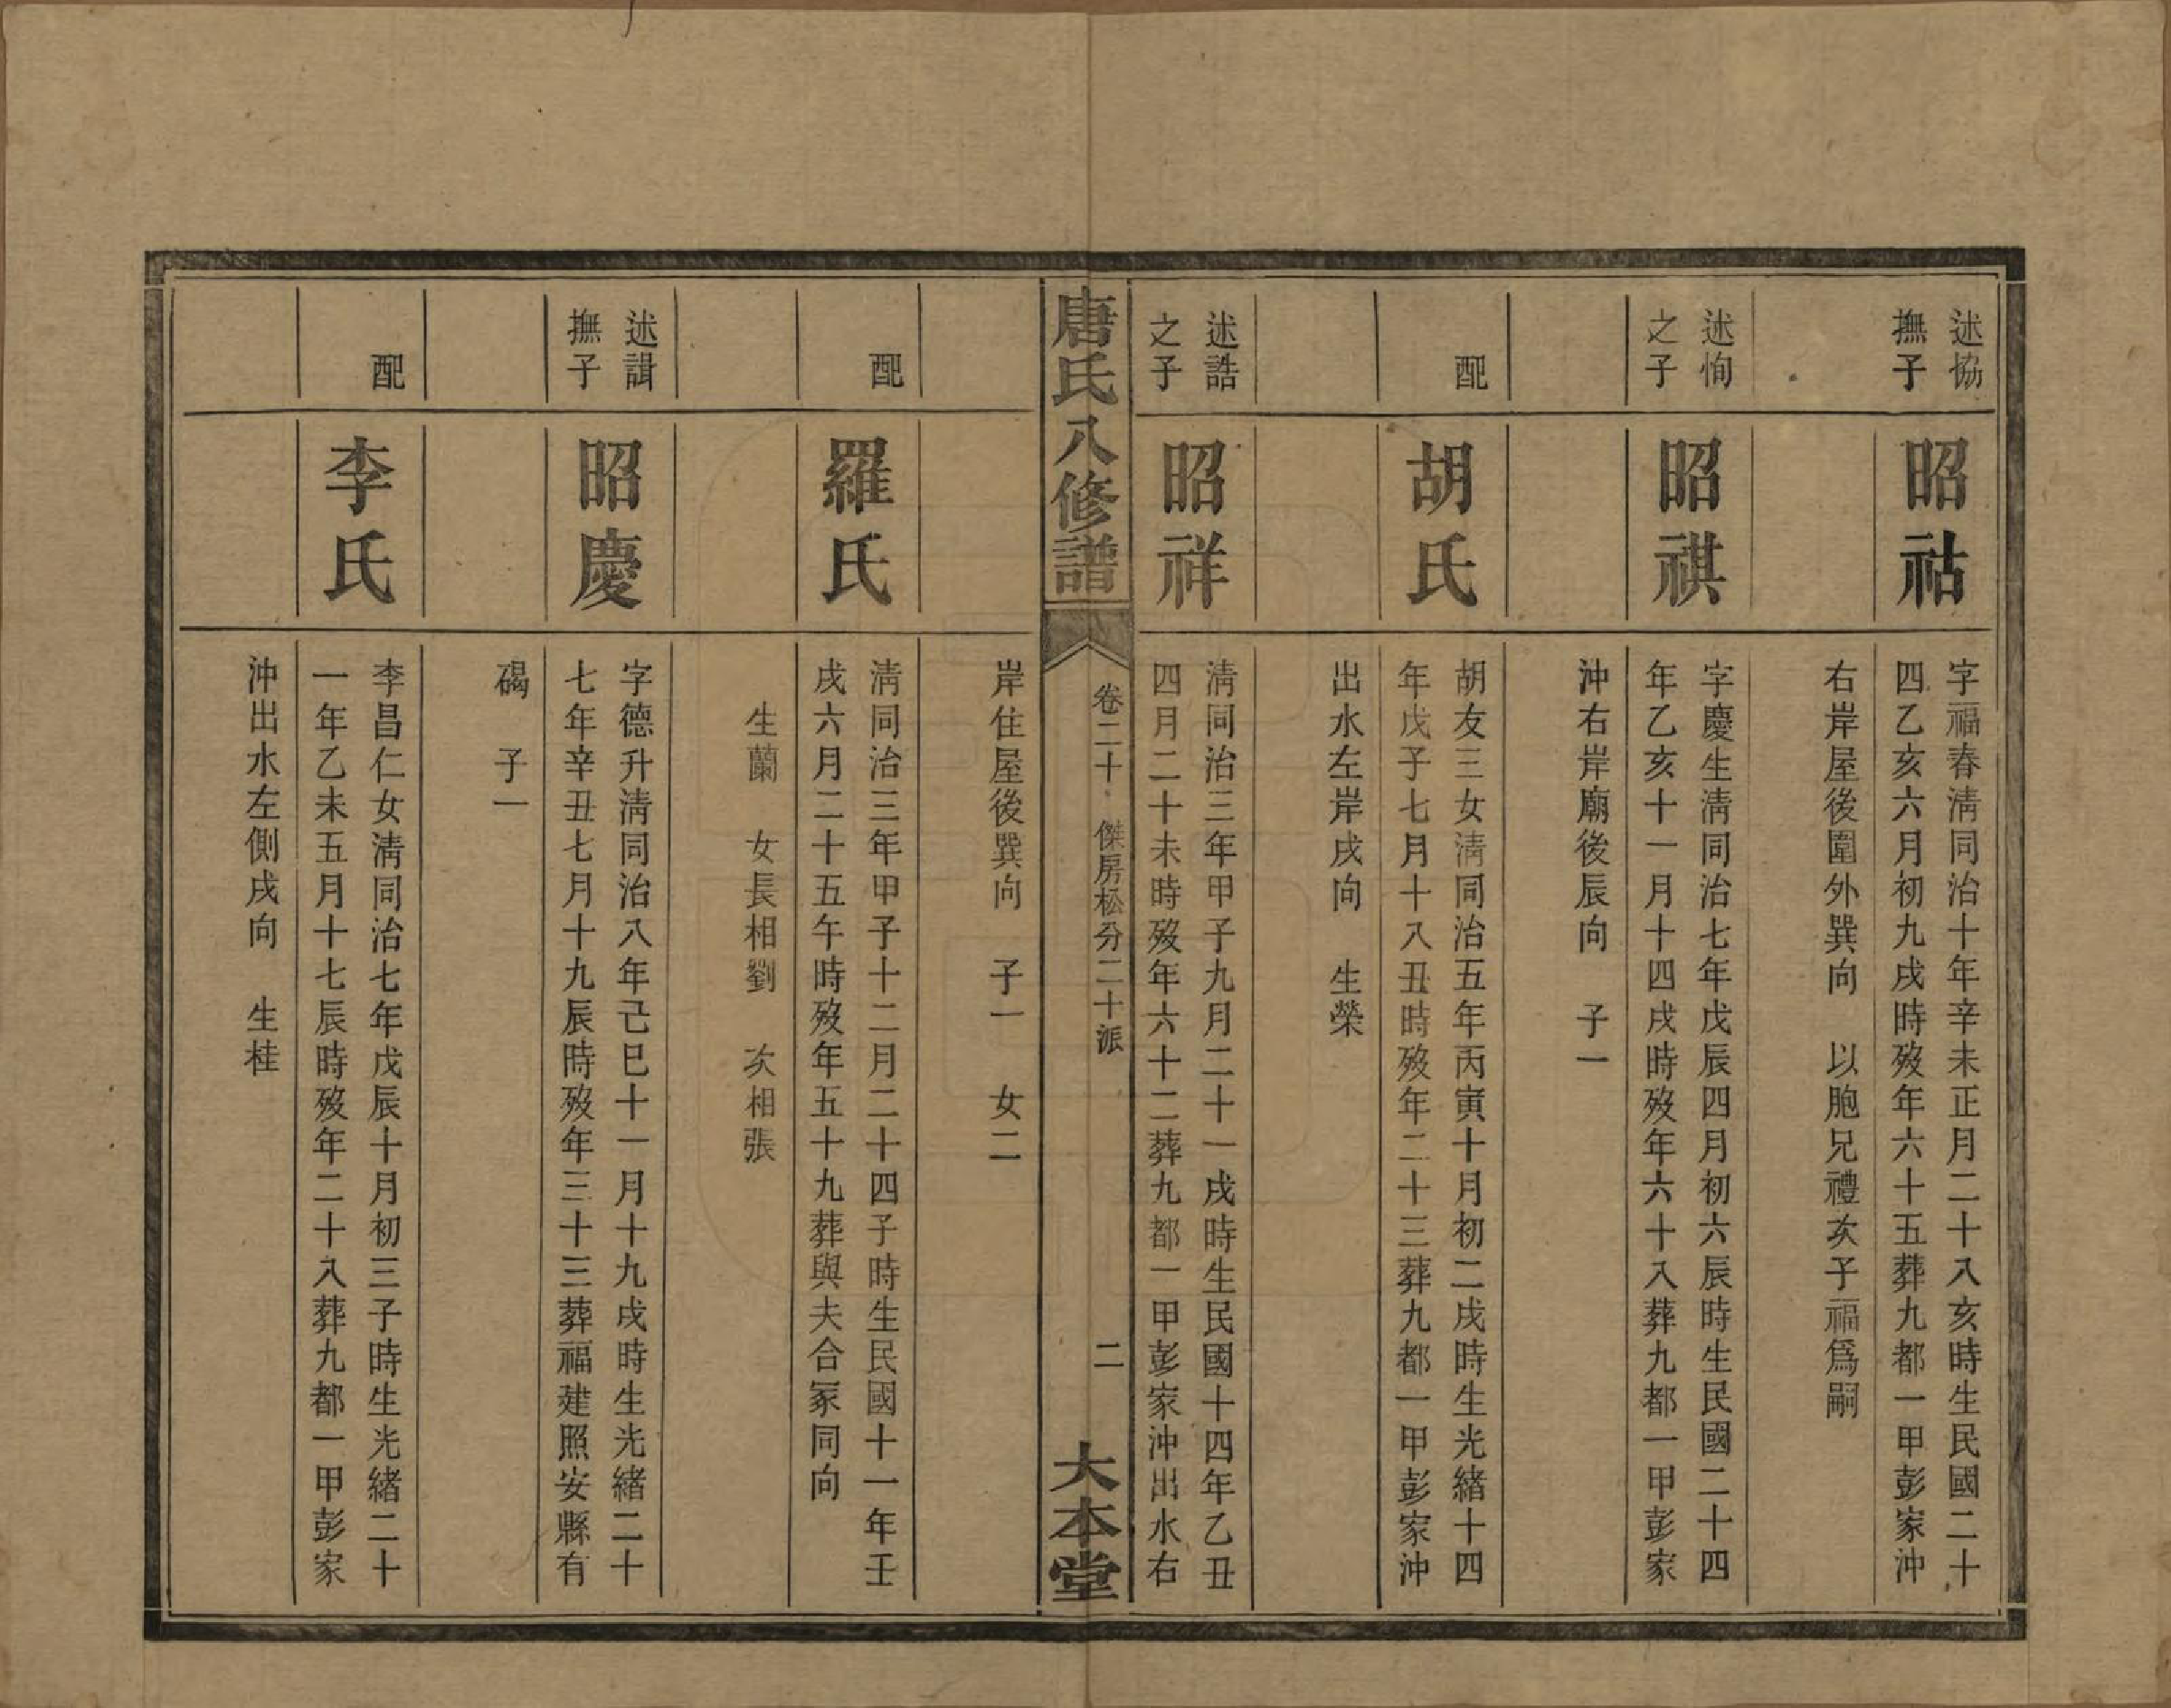 述協
撫子
昭祜
字福春淸同治十年辛未正月二十八亥時生民國二十
四乙亥六月初九戌時歿年六十五葬九都一甲彭家沖
右岸屋後圍外巽向 以胞兄禮次子福爲嗣
述恂
之子
昭祺
字慶生淸同治七年戊辰四月初六辰時生民國二十四
年乙亥十一月十四戌時歿年六十八葬九都一甲彭家
沖右岸廟後辰向 子一
配
胡氏
胡友三女淸同治五年丙寅十月初二戌時生光緒十四
年戊子七月十八丑時歿年二十三葬九都一甲彭家沖
出水左岸戌向 生榮
述誥
之子
昭祥
淸同治三年甲子九月二十一戌時生民國十四年乙丑
四月二十未時歿年六十二葬九都一甲彭家沖出水右
唐氏八修譜
卷二十 傑房松分二十派
二
大本堂
岸住屋後巽向 子一 女二
配
羅氏
淸同治三年甲子十二月二十四子時生民國十一年壬
戌六月二十五午時歿年五十九葬與夫合冢同向
生蘭 女長相劉 次相張
述諿
撫子
昭慶
字德升淸同治八年己巳十一月十九戌時生光緒二十
七年辛丑七月十九辰時歿年三十三葬福建照安縣有
碣 子一
配
李氏
李昌仁女淸同治七年戊辰十月初三子時生光緒二十
一年乙未五月十七辰時歿年二十八葬九都一甲彭家
沖出水左側戌向 生桂